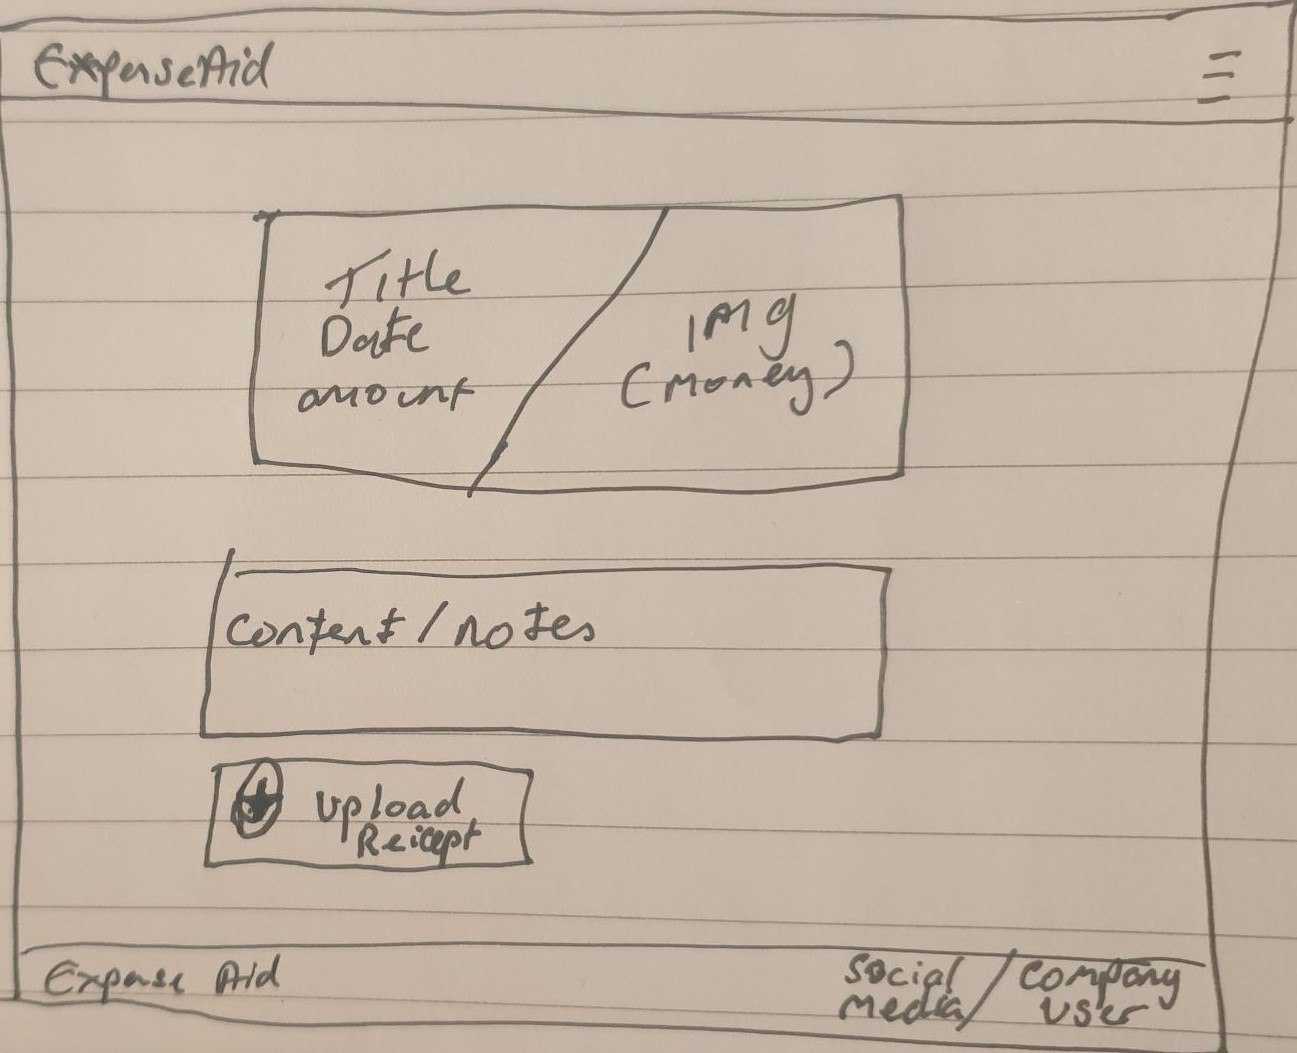 ExpenseAid
Title
Date
amount
IMG
(Money)
Content/notes
Upload
Reicept
Expense Aid
Social
Media/
Company
User